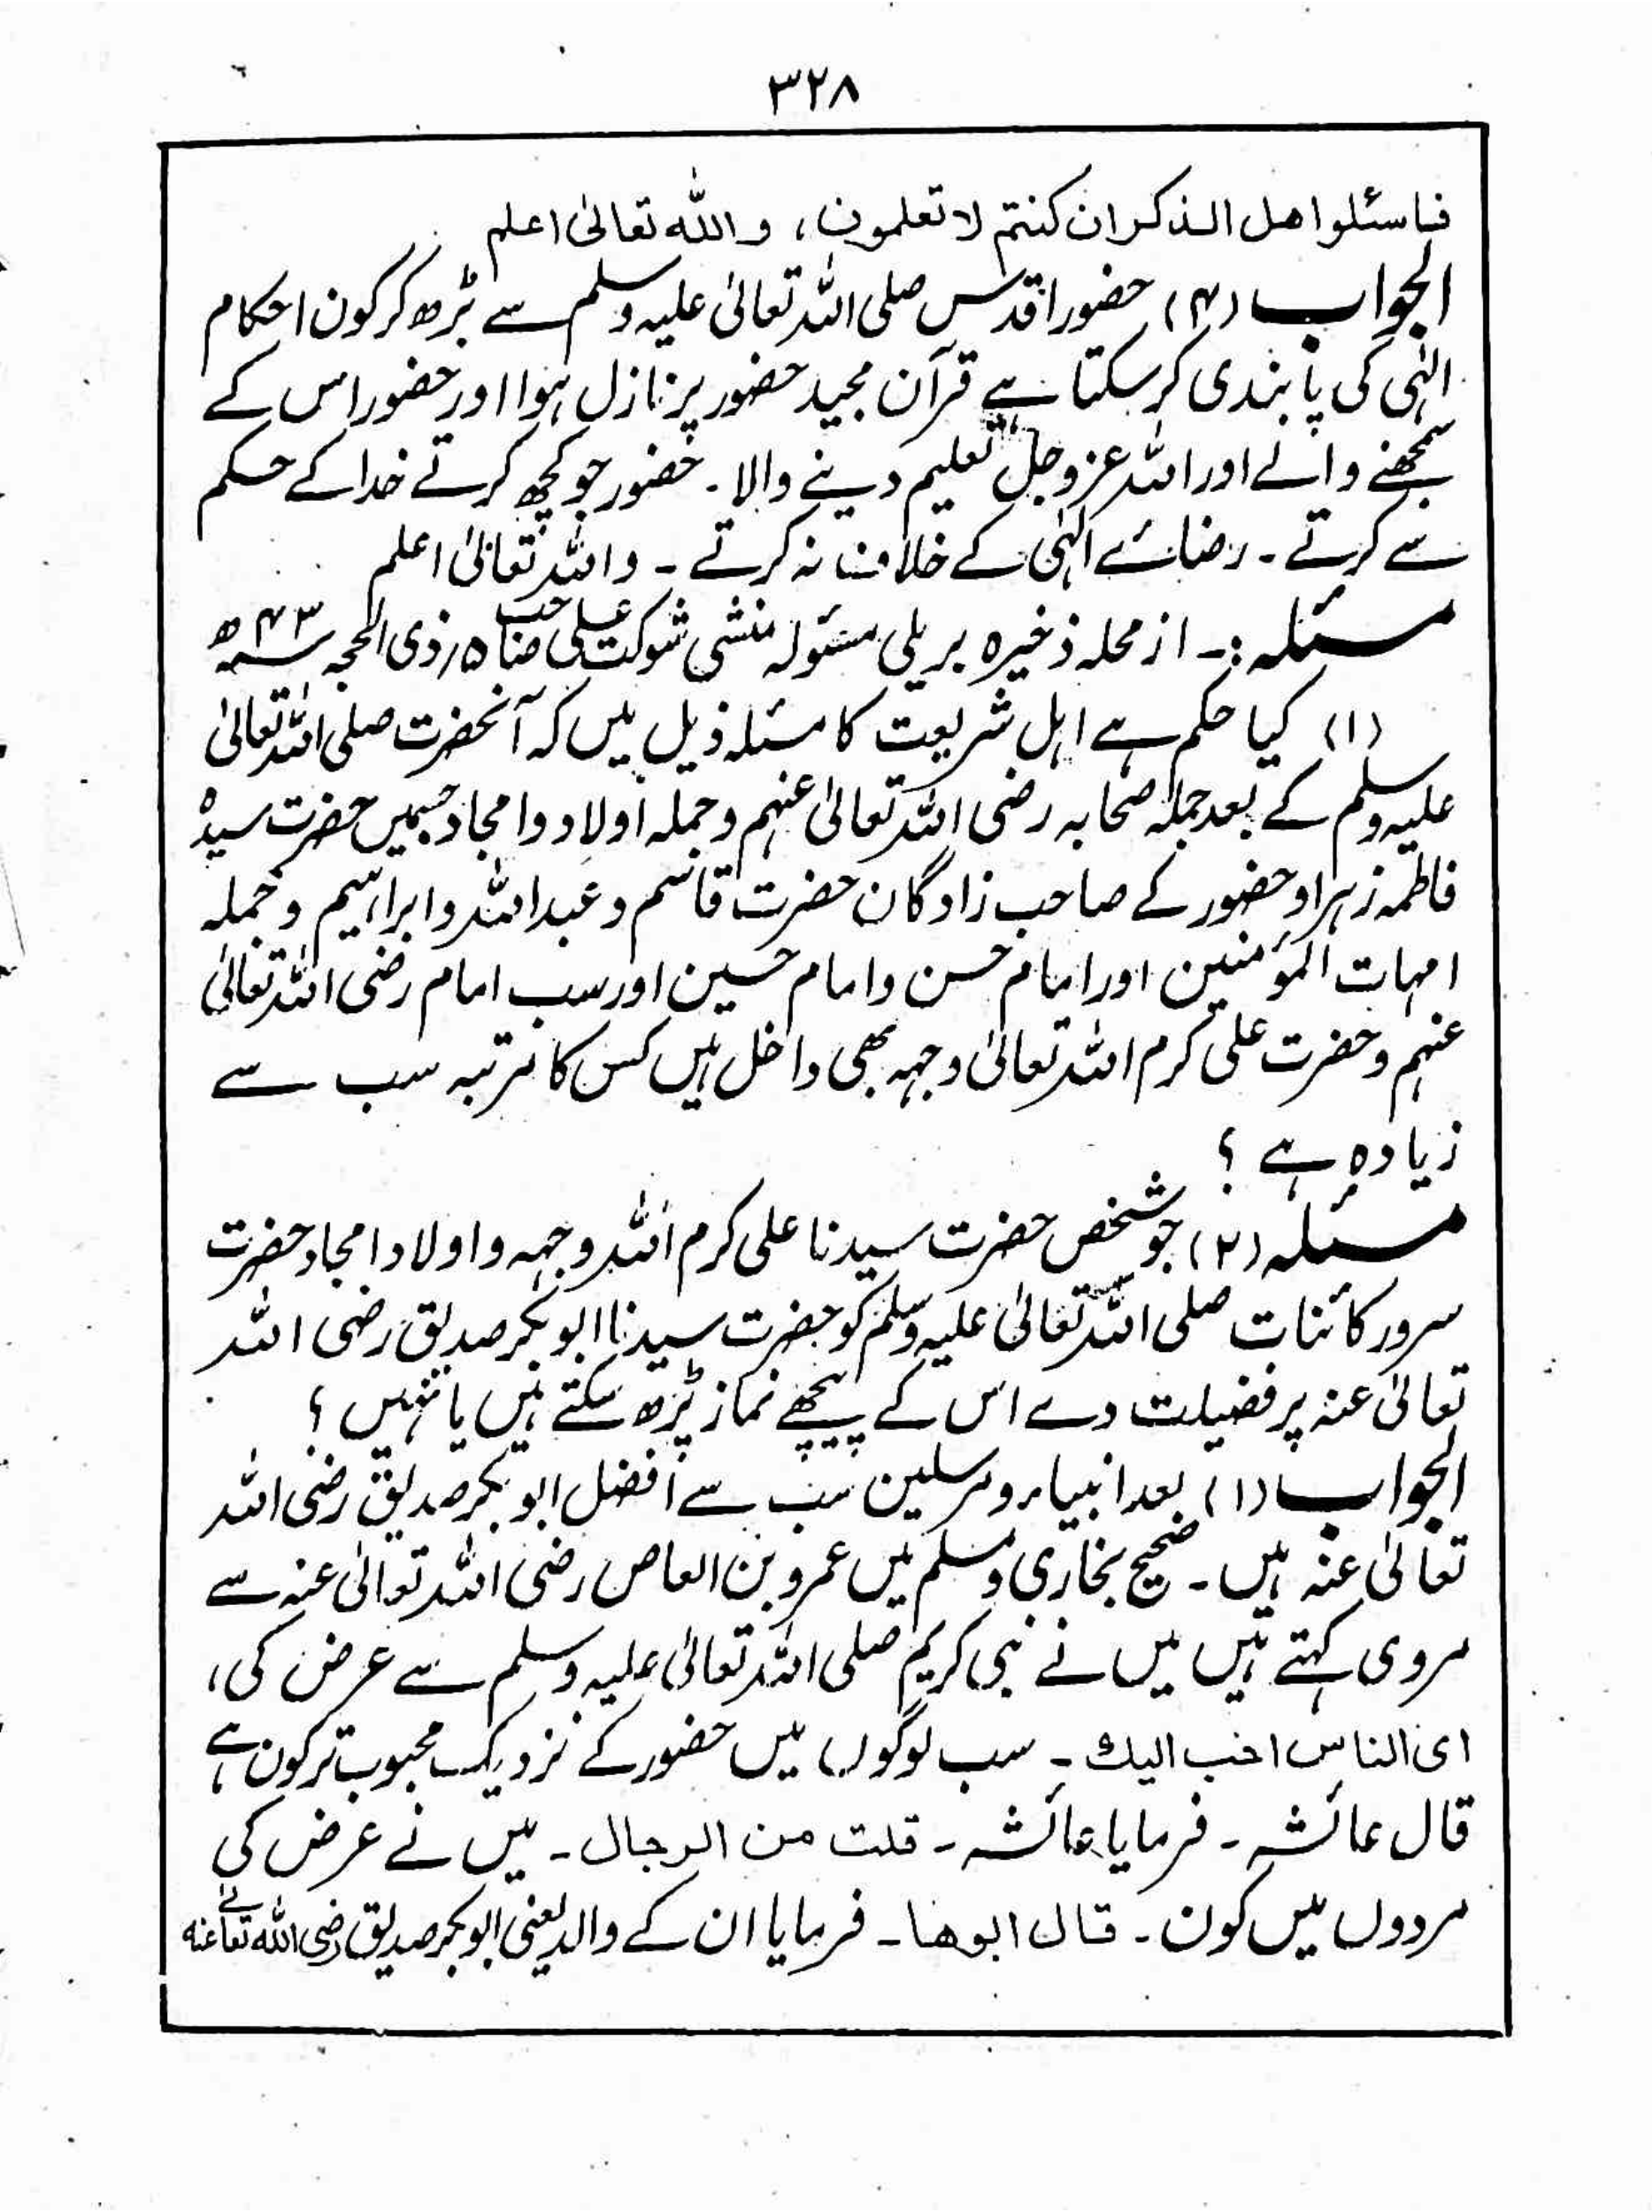 ۳۲۸
فاسئلوا اھل الذکر ان کنتم لا تعلمون، واللہ تعالیٰ اعلم
الجواب (۴) حضور اقدس صلی اللہ تعالیٰ علیہ وسلم سے بڑھ کر کون احکام
الٰہی کی پابندی کر سکتا ہے قرآن مجید حضور پر نازل ہوا اور حضور اس کے
سمجھنے والے اور اللہ عزوجل تعلیم دینے والا۔ حضور جو کچھ کرتے خدا کے حکم
سے کرتے ۔ رضائے الٰہی کے خلاف نہ کرتے ۔ واللہ تعالیٰ اعلم
مسئلہ :۔ از محلہ ذخیرہ بریلی مسئولہ منشی شوکت علی صاحب ۵؍ذی الحجہ سنہ ۴۳ھ
(۱) کیا حکم ہے اہل شریعت کا مسئلہ ذیل میں کہ آنحضرت صلی اللہ تعالیٰ
علیہ وسلم کے بعد جملہ صحابہ رضی اللہ تعالیٰ عنہم وجملہ اولاد وامجاد جسمیں حضرت سیدہ
فاطمہ زہرا و حضور کے صاحب زادگان حضرت قاسم و عبداللہ و ابراہیم و جملہ
امہات المؤمنین اور امام حسن و امام حسین اور سب امام رضی اللہ تعالیٰ
عنہم و حضرت علی کرم اللہ تعالیٰ وجہہ بھی داخل ہیں کس کا مرتبہ سب سے
زیادہ ہے ؟
مسئلہ (۲) جو شخص حضرت سیدنا علی کرم اللہ وجہہ و اولاد امجاد حضرت
سرور کائنات صلی اللہ تعالیٰ علیہ وسلم کو حضرت سیدنا ابو بکر صدیق رضی اللہ
تعالیٰ عنہ پر فضیلت دے اس کے پیچھے نماز پڑھ سکتے ہیں یا نہیں ؟
الجواب (۱) بعد انبیاء و مرسلین سب سے افضل ابو بکر صدیق رضی اللہ
تعالیٰ عنہ ہیں ۔ صحیح بخاری و مسلم میں عمرو بن العاص رضی اللہ تعالیٰ عنہ سے
مروی کہتے ہیں میں نے نبی کریم صلی اللہ تعالیٰ علیہ وسلم سے عرض کی،
ای الناس احب الیك ۔ سب لوگوں میں حضور کے نزدیک محبوب تر کون ہے
قال عائشہ ۔ فرمایا عائشہ ۔ قلت من الرجال ۔ میں نے عرض کی
مردوں میں کون ۔ قال ابوھا ۔ فرمایا ان کے والد یعنی ابو بکر صدیق رضی اللہ تعالیٰ عنہ